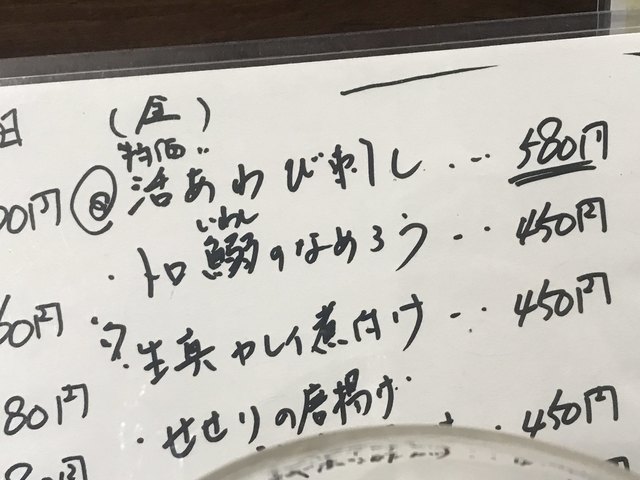 日 (金)
特価
00円 活あわび刺し・・・580円
いわし
・トロ鰯のなめろう・・450円
60円 生真カレイ煮付け・・450円
80円 ・せせりの唐揚げ
450円
80円